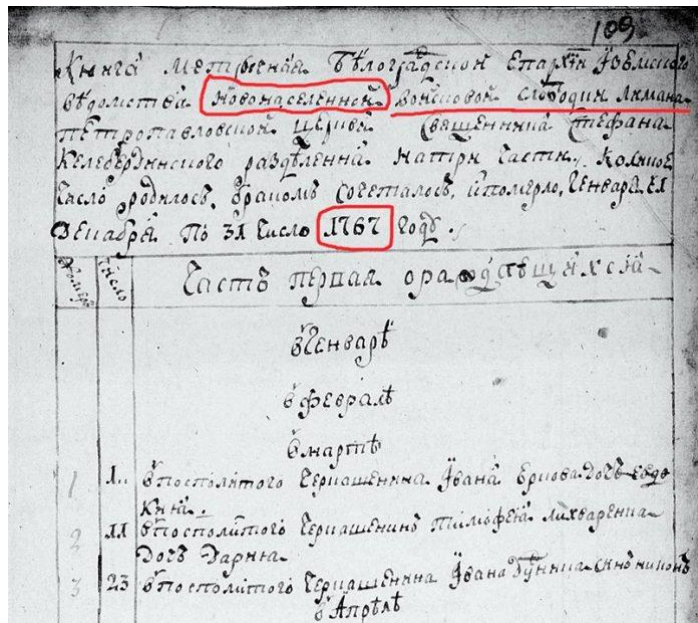 109
Книга Метрическая Бѣлоградской Епархіи Изюмского
вѣдомства Новонаселенной Войсковой слободи Лимана
Петропавловской церкви Священника Стефана
Келебердинского раздѣленна на три части, коликое
число родилось, бракомъ сочеталось, и померло, Генваря с 1
Декабря по 31 число 1767 году.
Номеръ число Часть первая о раждающихся
в Генварѣ
в Февралѣ
в мартѣ
1 1 в посполитого Черкашенина Ивана дочь Евдо
кия.
2 11 в посполитого Черкашенина Тимофея Лихваренка
дочь Дария.
3 23 в посполитого Черкашенина Ивана синъ
в Апрелѣ